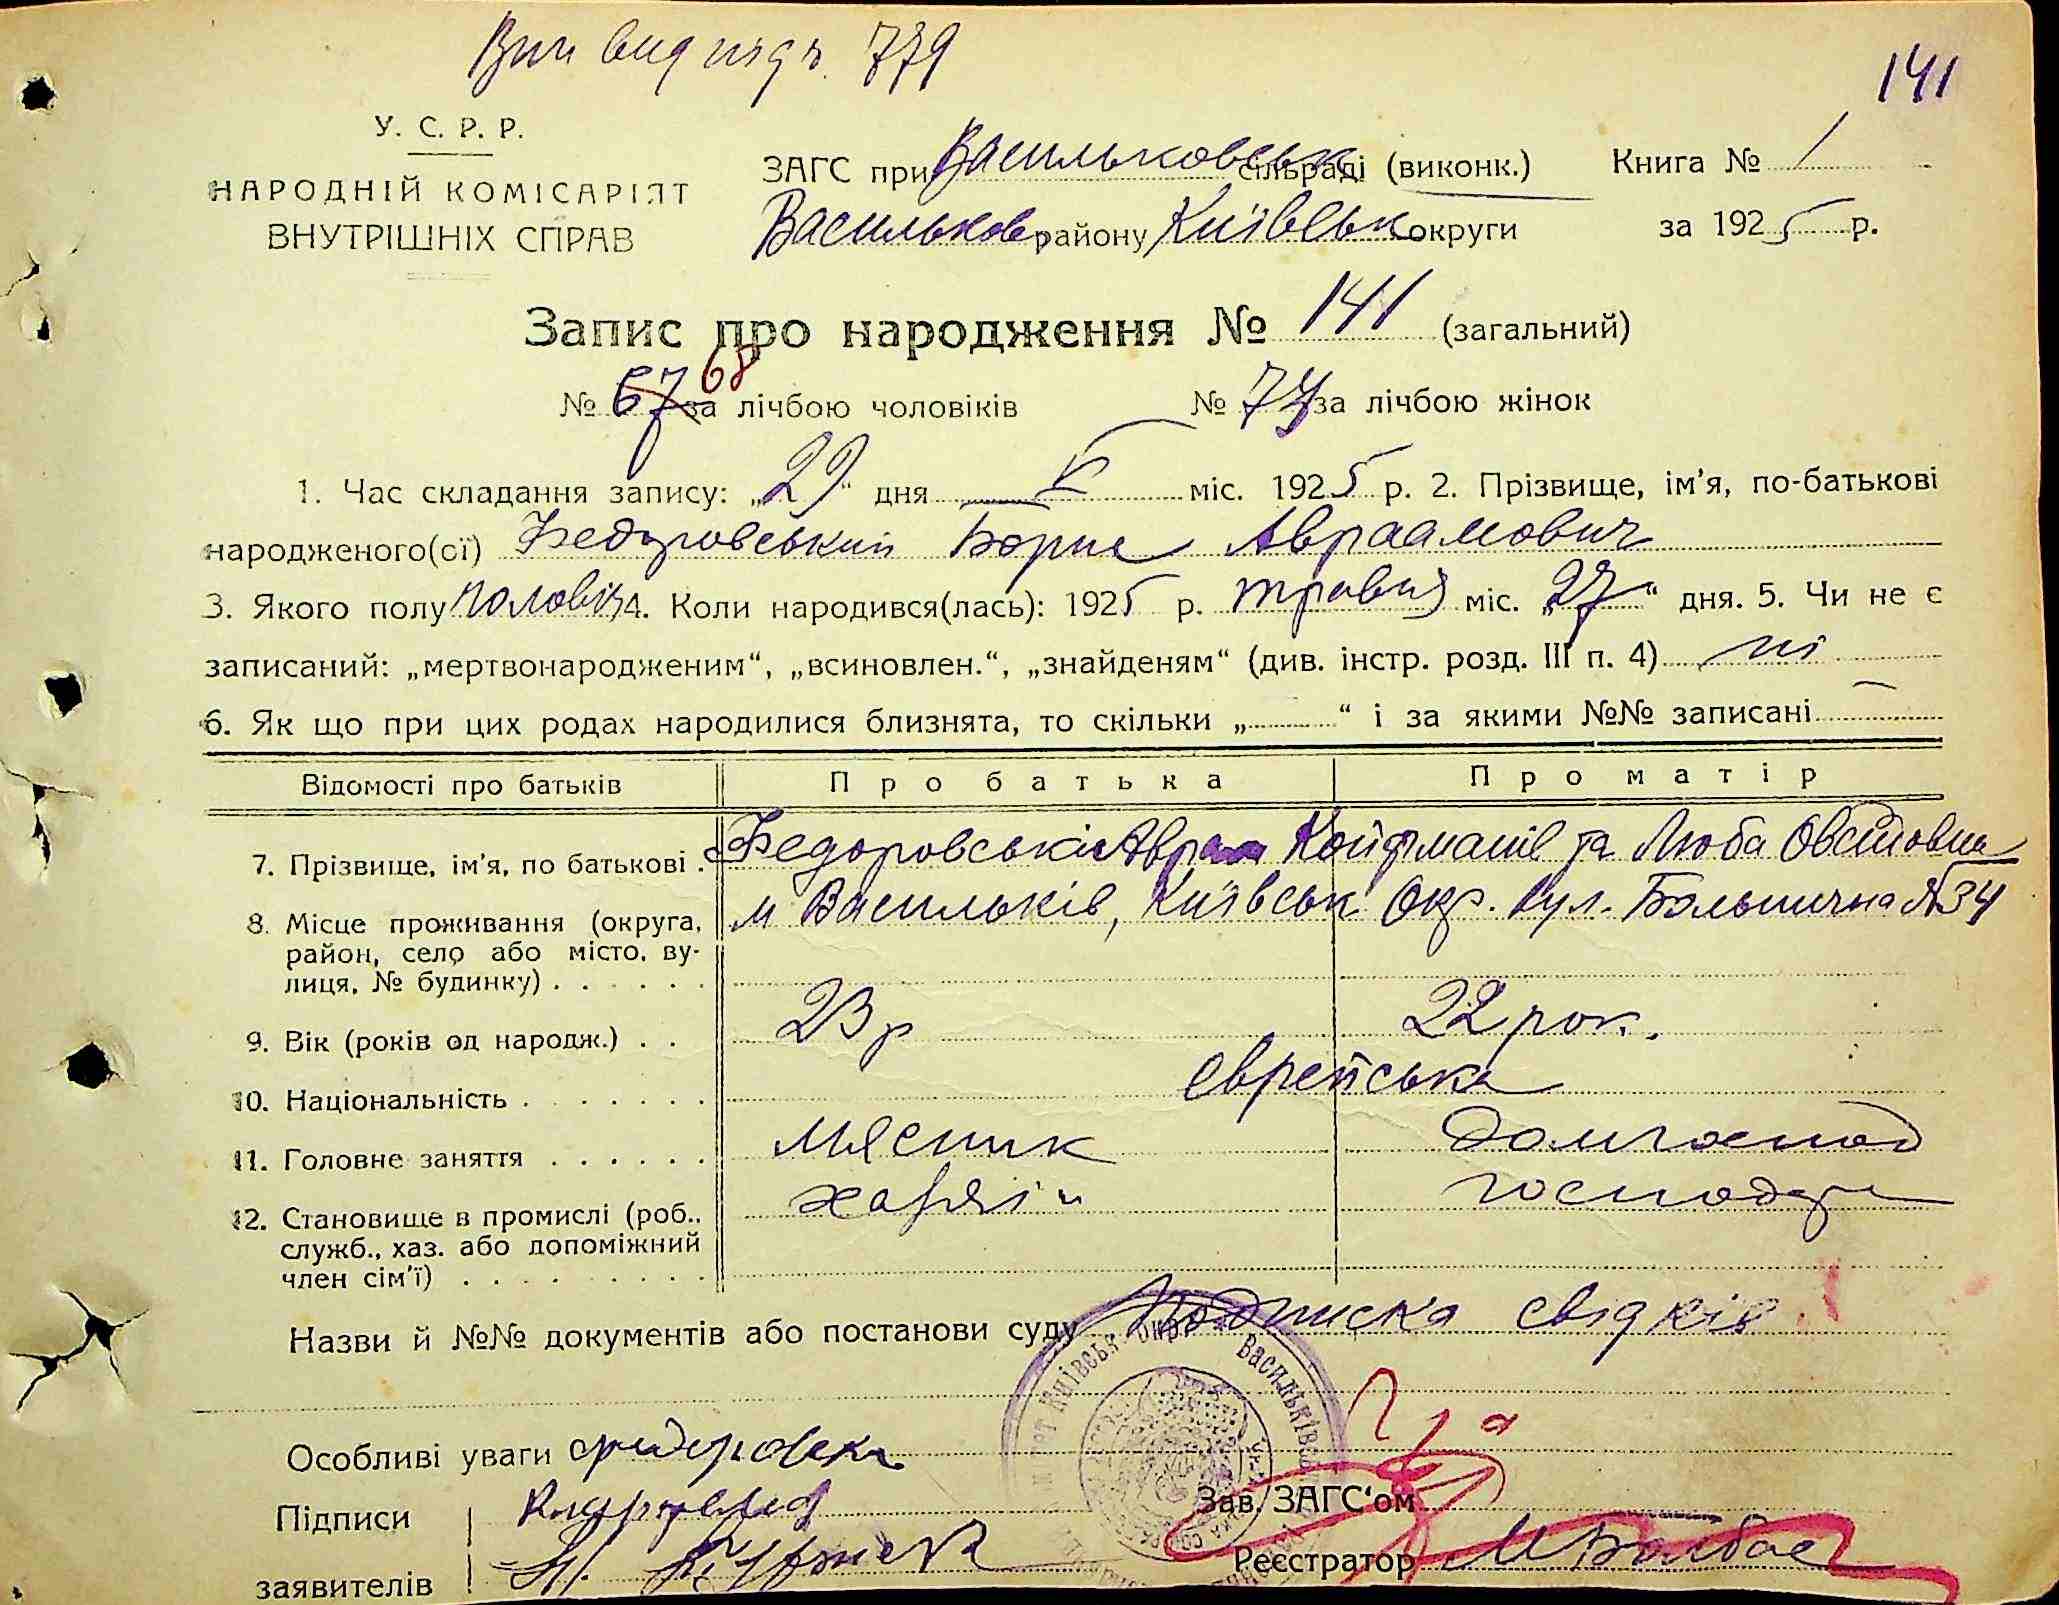 Вип видана 779
141
У. С. Р. Р.
НАРОДНІЙ КОМІСАРІЯТ
ВНУТРІШНІХ СПРАВ
ЗАГС при Васильковськ сільраді (виконк.) Книга № 1
Васильков району Київськ округи за 1925 р.
Запис про народження № 141 (загальний)
№ 67 68 за лічбою чоловіків № 74 за лічбою жінок
1. Час складання запису: „29“ дня V міс. 1925 р. 2. Прізвище, ім'я, по-батькові
народженого(ої) Федоровський Борис Авраамович
3. Якого полу чоловіч 4. Коли народився(лась): 1925 р. травня міс. „27“ дня. 5. Чи не є
записаний: „мертвонародженим“, „всиновлен.“, „знайденям“ (див. інстр. розд. III п. 4) ні
6. Як що при цих родах народилися близнята, то скільки „ “ і за якими №№ записані —
Відомості про батьків Про батька Про матір
7. Прізвище, ім'я, по батькові . Федоровські Авраам Койфманів та Люба Овсіївна
8. Місце проживання (округа, м Васильків, Київськ Окр. вул. Больнична № 34
район, село або місто, ву-
лиця, № будинку) . . . . . .
9. Вік (років од народж.) . . 23 р 22 рок.
10. Національність . . . . . . . еврейська
11. Головне заняття . . . . . . мясник домгоспод
12. Становище в промислі (роб., хазяїн господар
служб., хаз. або допоміжний
член сім'ї) . . . . . . . . .
Назви й №№ документів або постанови суду Подписка свідків
Особливі уваги
Підписи
заявителів
Зав. ЗАГС'ом
Реєстратор